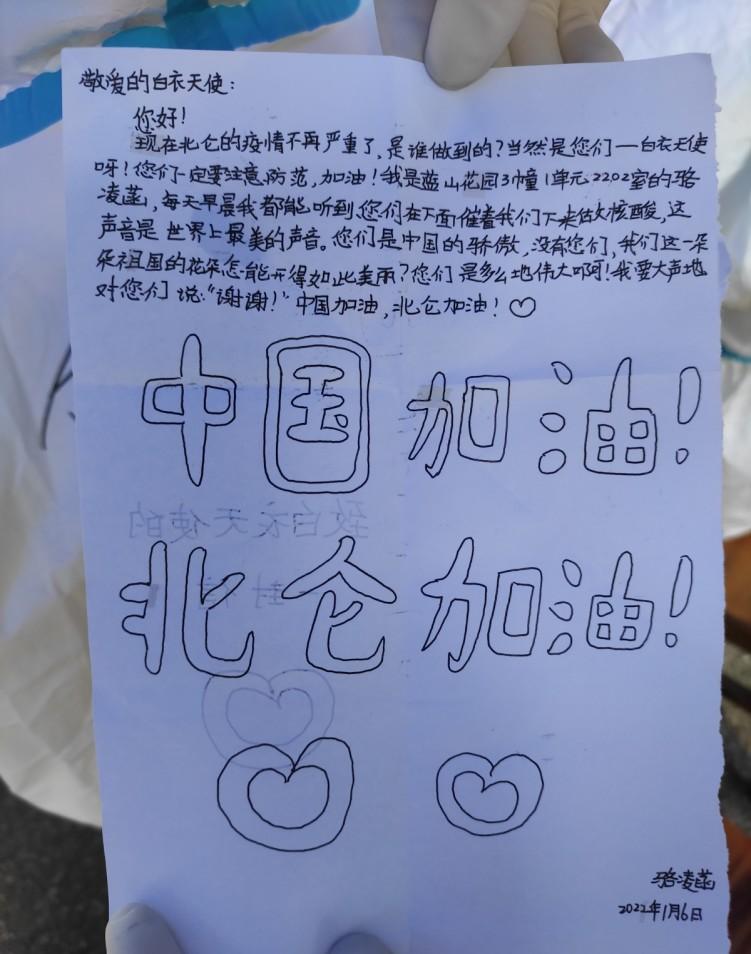 敬爱的白衣天使：
您好！
现在北仑的疫情不再严重了，是谁做到的？当然是您们——白衣天使
呀！您们一定要注意防范，加油！我是蓝山花园3幢1单元2202室的骆
凌菡，每天早晨我都能听到您们在下面催着我们下来做核酸，这
声音是世界上最美的声音。您们是中国的骄傲，没有您们，我们这一朵
朵祖国的花朵怎能开得如此美丽？您们是多么地伟大啊！我要大声地
对您们说：“谢谢！”中国加油，北仑加油！
中国加油！
致白衣天使的
一封信
北仑加油！
骆凌菡
2022年1月6日